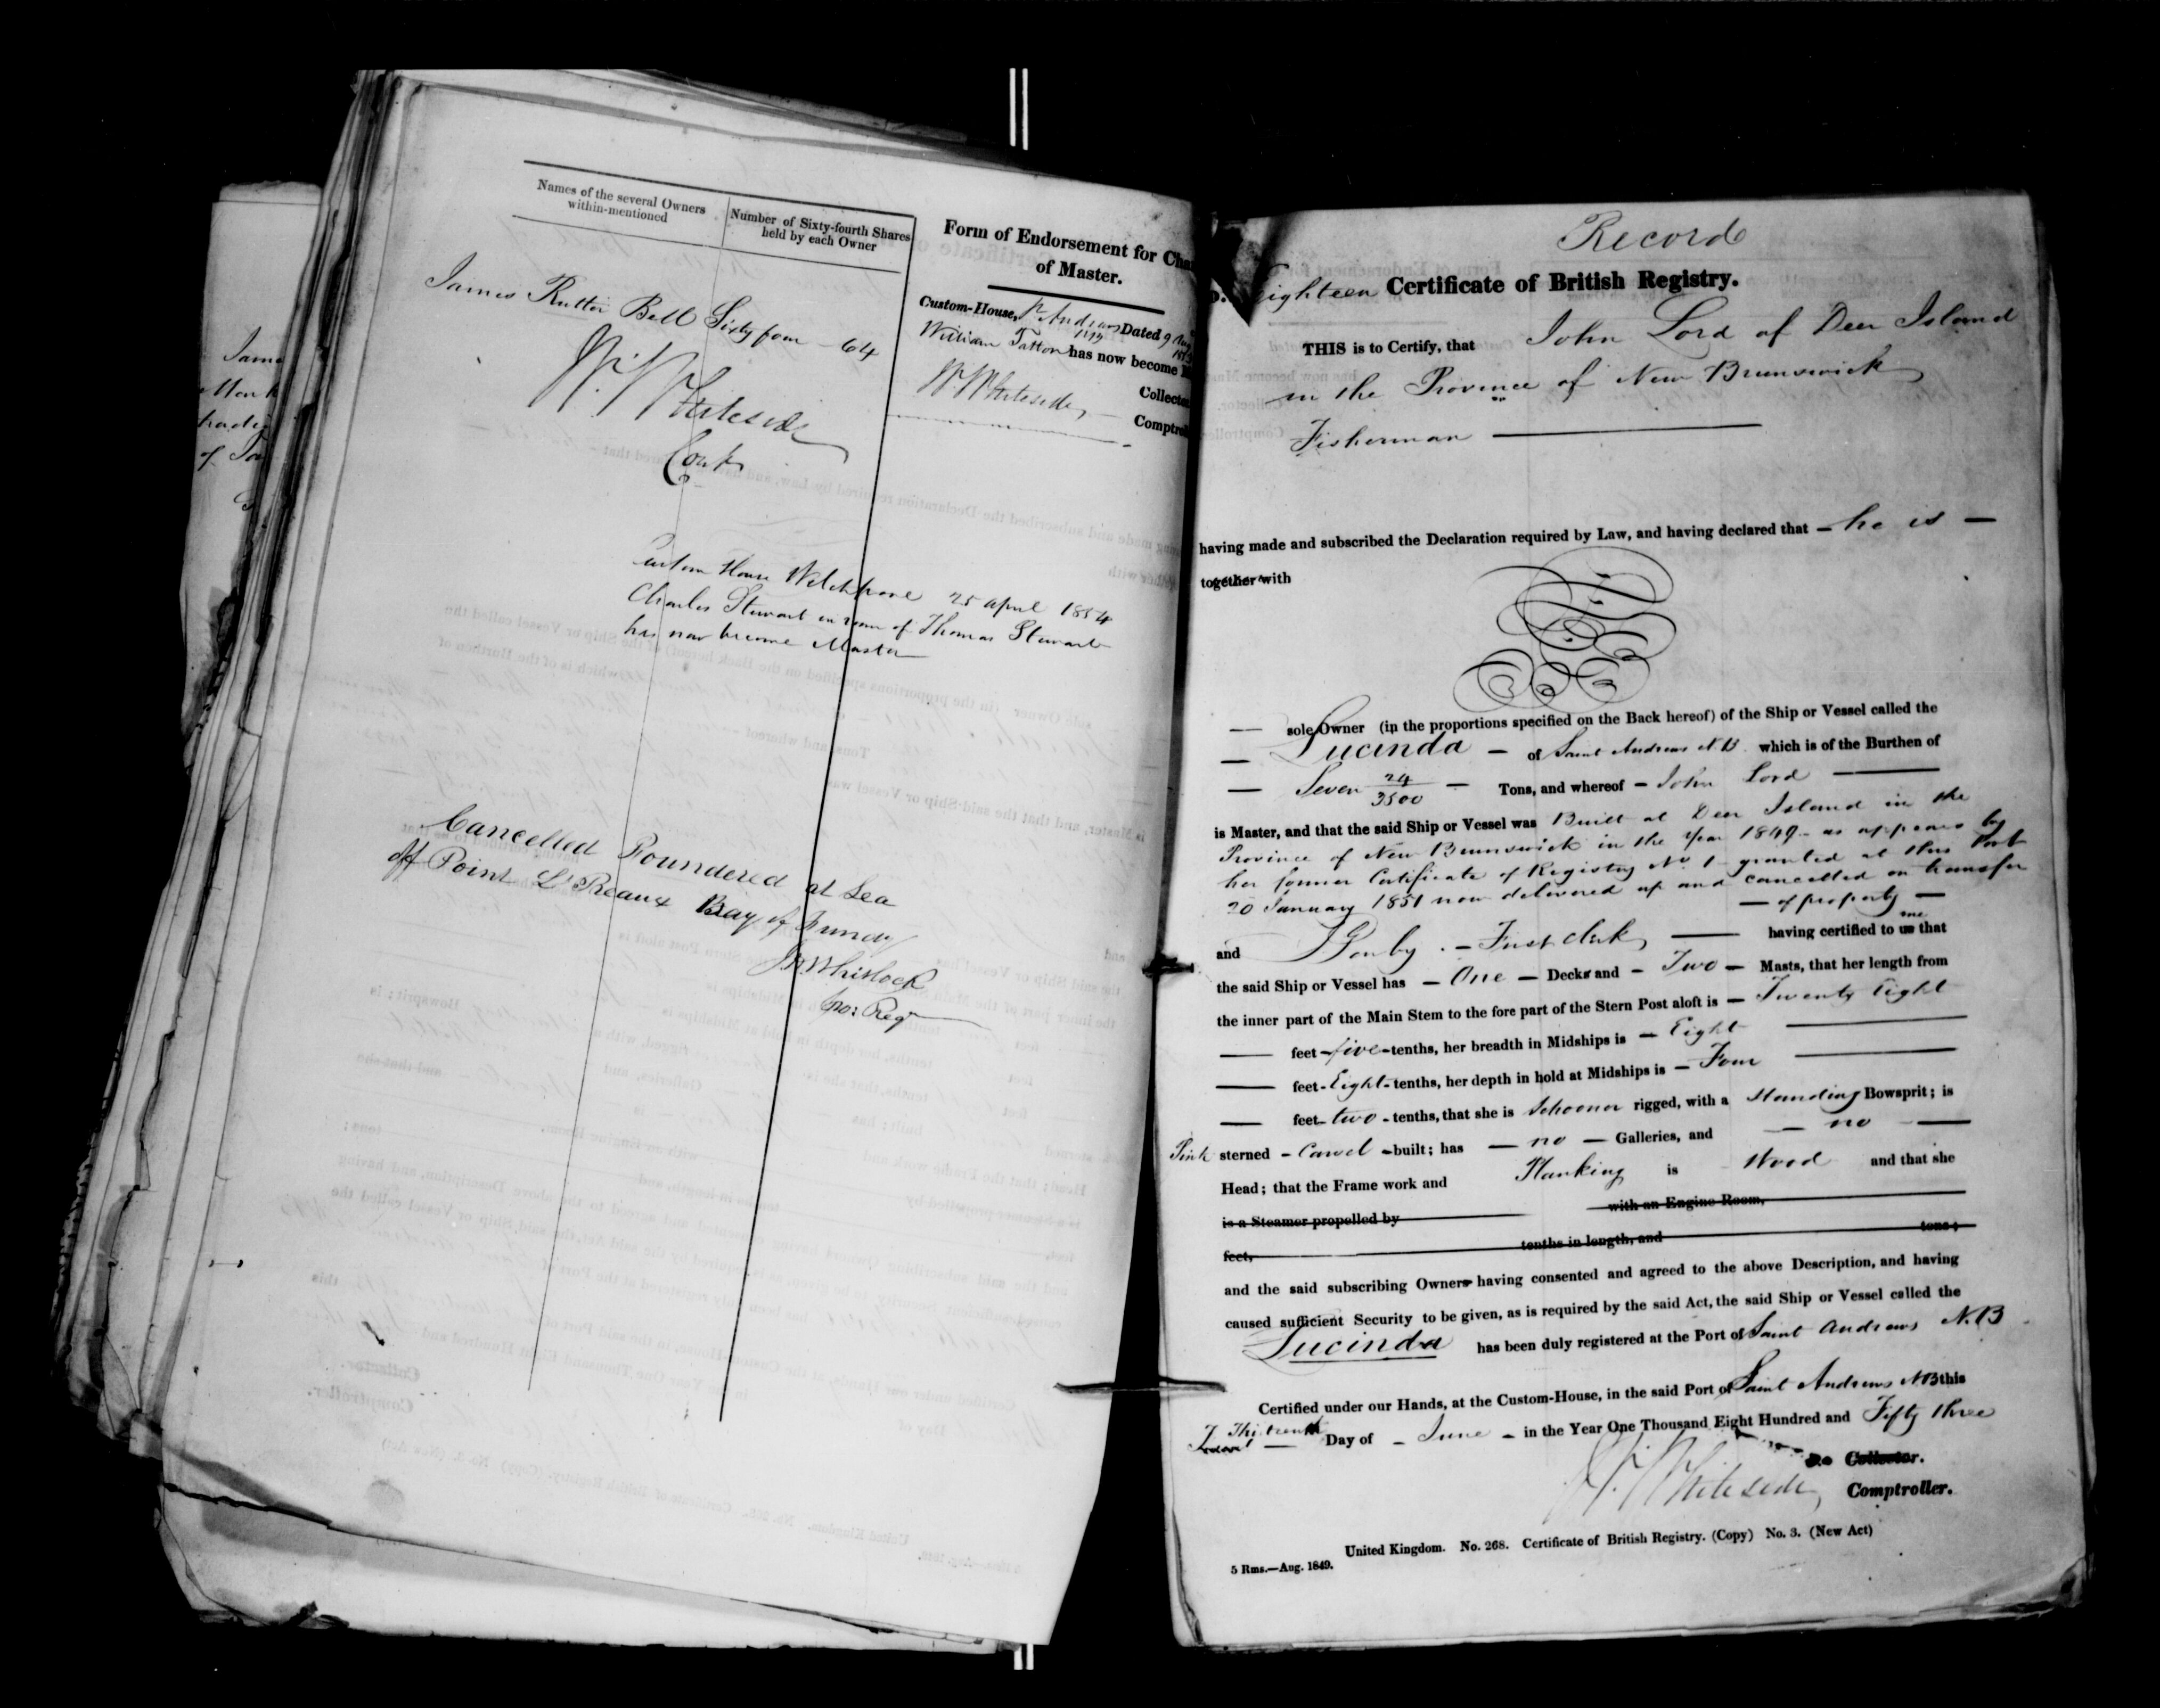 Names of the several Owners
within-mentioned
Number of Sixty-fourth Shares
held by each Owner
James Rutter Bell Sixty four - 64
W. Whiteside
Custom House Welchpool 25 April 1854
Charles Stewart in room of Thomas Stewart
has now become Master
Cancelled Foundered at Sea
off Point Le Preaux Bay of Fundy
J. W. Whitlock
Form of Endorsement for Cha
of Master.
Custom-House, St Andrews Dated 9 Aug
William Tatton has now become
W. Whiteside
Collector
Comptrol
Record
Eighteen Certificate of British Registry.
THIS is to Certify, that John Lord of Deer Island
in the Province of New Brunswick
Fisherman
having made and subscribed the Declaration required by Law, and having declared that - he is -
together with
sole Owner (in the proportions specified on the Back hereof) of the Ship or Vessel called the
Lucinda - of Saint Andrews N.B. which is of the Burthen of
Seven 24/3500 - Tons, and whereof - John Lord
is Master, and that the said Ship or Vessel was Built at Deer Island in the
Province of New Brunswick in the year 1849 - as appears by
her former Certificate of Registry No 1 granted at this Port
20 January 1851 now delivered up and cancelled on transfer
- of property -
and - First Clerk having certified to me that
the said Ship or Vessel has - One - Decks and - Two - Masts, that her length from
the inner part of the Main Stem to the fore part of the Stern Post aloft is - Twenty Eight
feet - five - tenths, her breadth in Midships is - Eight
feet - Eight - tenths, her depth in hold at Midships is - Four
feet - two - tenths, that she is Schooner rigged, with a Standing Bowsprit; is
Pink sterned - Carvel - built; has - no - Galleries, and - no -
Head; that the Frame work and Planking is Wood and that she
is a Steamer propelled by with an Engine Room,
feet, tenths in length, and tons;
and the said subscribing Owners having consented and agreed to the above Description, and having
caused sufficient Security to be given, as is required by the said Act, the said Ship or Vessel called the
Lucinda has been duly registered at the Port of Saint Andrews N.B
Certified under our Hands, at the Custom-House, in the said Port of Saint Andrews NB this
Thirteenth Day of - June - in the Year One Thousand Eight Hundred and Fifty three
Collector.
W. Whiteside, Comptroller.
United Kingdom. No. 268. Certificate of British Registry. (Copy) No. 3. (New Act)
5 Rms.—Aug. 1849.